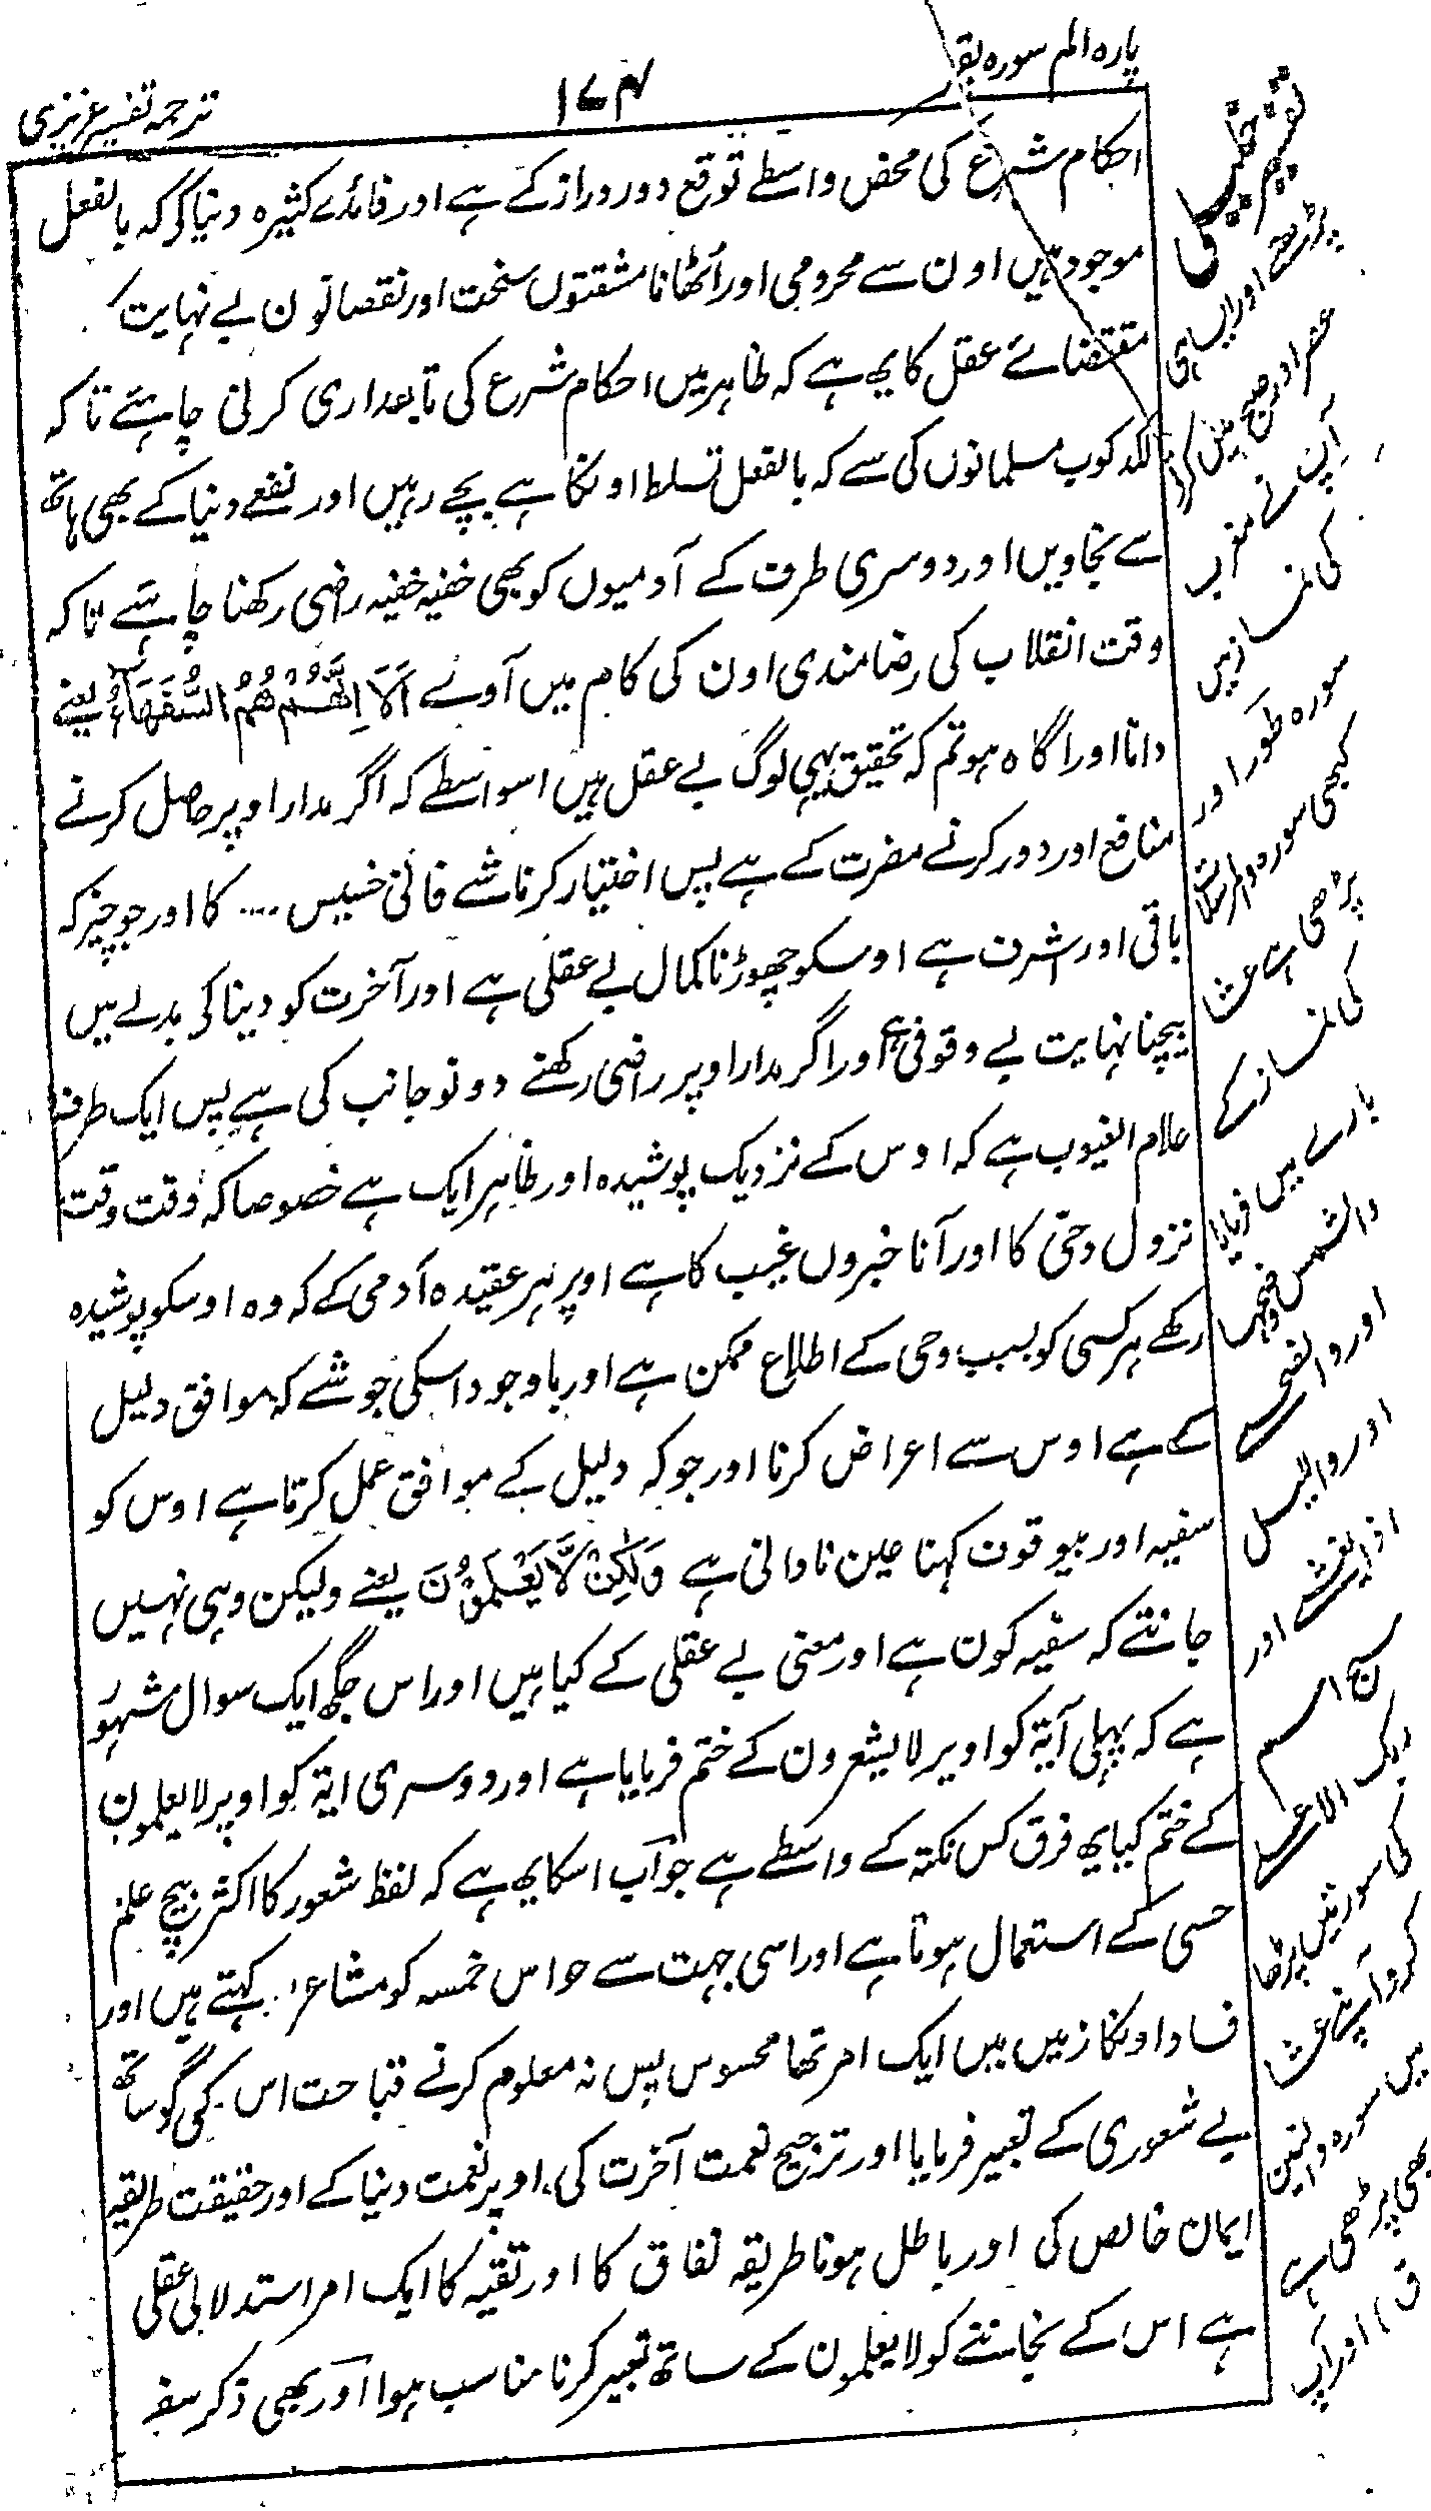 پارہ الم سورہ بقر
۱۷۴
ترجمہ تفسیر عزیزی
احکام شرع کی محض واسطے توقع دور دراز کے ہے اور فائدے کثیرہ دنیا کی کہ بالفعل
موجود ہیں اون سے محرومی اور اُٹھانا مشقتوں سخت اور نقصانون بے نہایت
مقتضائے عقل کا یہ ہے کہ ظاہر میں احکام شرع کی تابعداری کرنی چاہئے تا کہ
لکد کوب مسلمانوں کی سے کہ بالفعل تسلط اونکا ہے بچے رہیں اور نفعے دنیا کے بھی ہاتھ
سے نجاویں اور دوسری طرف کے آدمیوں کو بھی خفیہ خفیہ راضی رکھنا چاہئے تا کہ
وقت انقلاب کی رضامندی اون کی کام میں آوے اَلَا اِنَّهُمْ هُمُ السُّفَهَآءُ یعنے
دانا اور اگاہ ہو تم کہ تحقیق یہی لوگ بے عقل ہیں اسواسطے کہ اگر مدار اوپر حاصل کرنے
منافع اور دور کرنے مضرت کے ہے پس اختیار کرنا شے فانی خسیس .... کا اور جو چیز کہ
باقی اور اشرف ہے اوسکو چھوڑنا کمال بے عقلی ہے اور آخرت کو دینا کی بدلے میں
بیچنا نہایت بے وقوفی ہے اور اگر مدار اوپر راضی رکھنے دونو جانب کی ہے پس ایک طرف
علام الغیوب ہے کہ اوس کے نزدیک پوشیدہ اور ظاہر ایک ہے خصوصا کہ وقت وقت
نزول وحی کا اور آنا خبروں غیب کا ہے اوپر ہر عقیدہ آدمی کے کہ وہ اوسکو پوشیدہ
رکھے ہر کسی کو بسبب وحی کے اطلاع ممکن ہے اور باوجود اسکی جو شے کہ موافق دلیل
کے ہے اوس سے اعراض کرنا اور جو کہ دلیل کے موافق عمل کرتا ہے اوس کو
سفیہ اور بیوقوف کہنا عین نادانی ہے وَلٰكِنْ لَّا يَعْلَمُوْنَ یعنے ولیکن وہی نہیں
جانتے کہ سفیہ کون ہے اور معنی بے عقلی کے کیا ہیں اور اس جگھ ایک سوال مشہور
ہے کہ پہلی آیۃ کو اوپر لا یشعرون کے ختم فرمایا ہے اور دوسری ایۃ کو اوپر لا یعلمون
کے ختم کیا یہ فرق کس نکتہ کے واسطے ہے جواب اسکا یہ ہے کہ لفظ شعور کا اکثر بیچ علم
حسی کے استعمال ہوتا ہے اور اسی جہت سے حواس خمسہ کو مشاعر کہتے ہیں اور
فساد اونکا زمیں میں ایک امر تھا محسوس پس نہ معلوم کرنے قباحت اس کی کو ساتھ
بے شعوری کے تعبیر فرمایا اور ترجیح نعمت آخرت کی اوپر نعمت دنیا کے اور حقیقت طریقہ
ایمان خالص کی اور باطل ہونا طریقہ نفاق کا اور تقیہ کا ایک امر استدلالی عقلی
ہے اس کے نجاننے کو لا یعلمون کے ساتھ تعبیر کرنا مناسب ہوا اور بھی ذکر سفہ
پڑھتے اور ایسا ہی
کی نماز میں
سورہ طور اور
کبھی سورہ والمرسلات
پڑھی ہے عشا
کی نماز کے
بارے میں فرمایا
والشمس وضحہا
اور والضحی
اور واللیل
اذا یغشے اور
سبح اسم
ربک الاعلی
کی سورتیں پڑھا
کرو آپ نے عشا
میں سورہ والتین
بھی پڑھی ہے